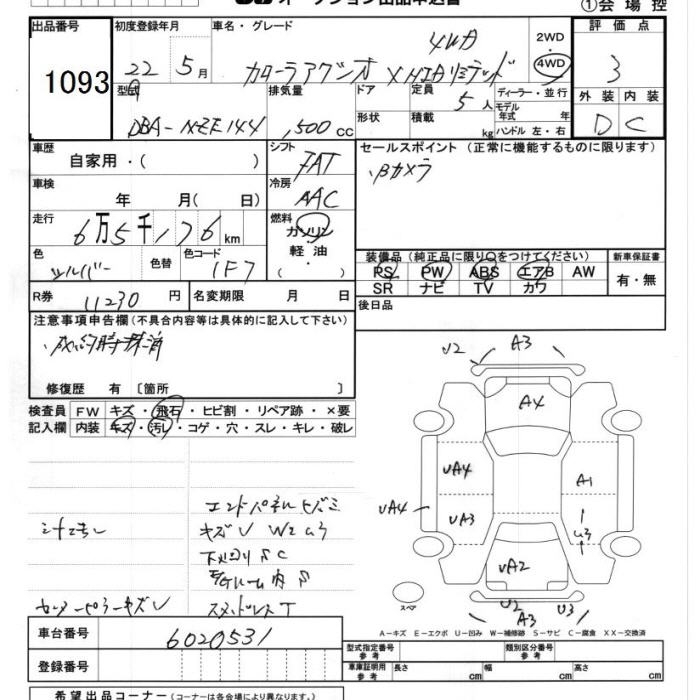 ①会場控
出品番号
1093
初度登録年月
22年 5月
車名・グレード
カローラアクシオ X HIDリミテッド 4WD
2WD
4WD
評価点
3
外装 内装
D C
型式
DBA-NZE144
排気量
1,500 CC
ドア
形状
定員
5人
積載
kg
ディーラー・並行
モデル
年式 年
ハンドル 左・右
車歴
自家用・( )
シフト
FAT
車検
年 月( 日)
冷房
AAC
走行
6万5千176km
燃料
ガソリン
軽油
・( )
色
シルバー
色替
色コード
1F7
R券
11230円
名変期限 月 日
セールスポイント(正常に機能するものに限ります)
・Bカメラ
装備品(純正品に限り○をつけてください)
PS PW ABS エアB AW
SR ナビ TV カワ
新車保証書
有・無
後日品
注意事項申告欄(不具合内容等は具体的に記入して下さい)
修復歴 有〔箇所 〕
検査員 FW キズ・飛石・ヒビ割・リペア跡・×要
記入欄 内装 キズ・汚レ・コゲ・穴・スレ・キレ・破レ
エンドパネルヒズミ
キズU W2 U3
下廻りSC
スタッドレスT
U2
A3
A4
UA4
A1
UA4
UA3
U3
UA2
スペア
U2
A3
U3
A-キズ E-エクボ U-凹み W-補修跡 S-サビ C-腐食 XX-交換済
車台番号
6020531
登録番号
型式指定番号
参考
類別区分番号
参考
車庫証明用
参考
長さ cm
幅 cm
高さ cm
希望出品コーナー(コーナーは各会場により異なります。)